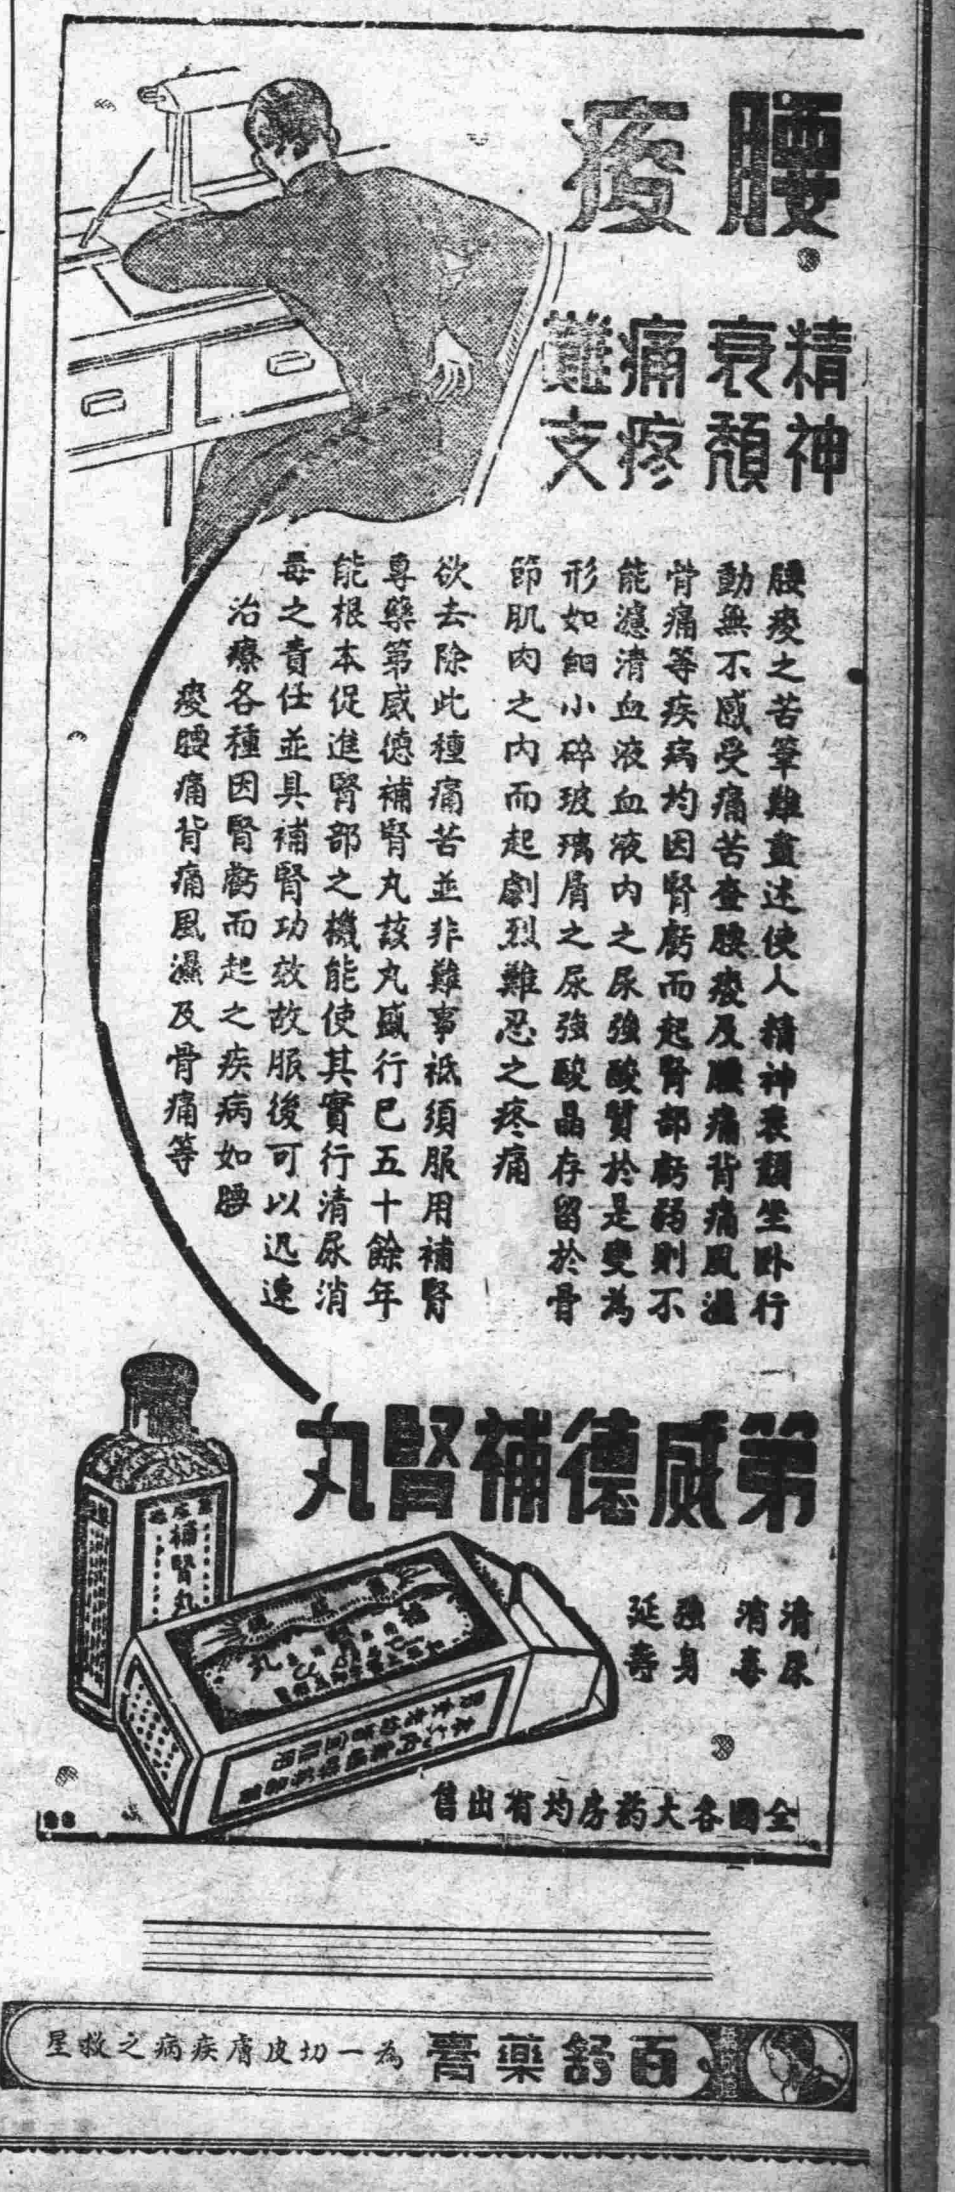 腰痠
精神
衰頹
痛疼
難支
腰痠之苦筆難盡述使人精神衰頹坐卧行
動無不感受痛苦查腰痠及腰痛背痛風濕
骨痛等疾病均因腎虧而起腎部虧弱則不
能濾清血液血液內之尿強酸質於是變為
形如細小碎玻璃屑之尿強酸晶存留於骨
節肌肉之內而起劇烈難忍之疼痛
欲去除此種痛苦並非難事祗須服用補腎
專藥第威德補腎丸該丸盛行已五十餘年
能根本促進腎部之機能使其實行清尿消
毒之責任並具補腎功效故服後可以迅速
治療各種因腎虧而起之疾病如腰
痠腰痛背痛風濕及骨痛等
第威德補腎丸
補腎丸
清尿
消毒
強身
延壽
全國各大葯房均有出售
百舒藥膏
為一切皮膚疾病之救星